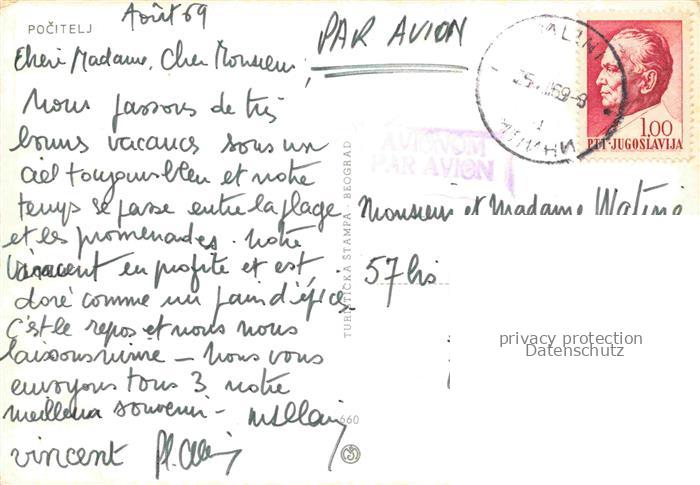 POČITELJ
Août 69
PAR AVION
Chère Madame, Cher Monsieur,
Nous passons de très
bonnes vacances sous un
ciel toujours bleu et notre
temps se passe entre la plage
et les promenades. Notre
Vincent en profite et est
doré comme un pain d'épices
c'est le repos et nous nous
laissons vivre – Nous vous
envoyons tous 3 notre
meilleur souvenir –
vincent
TURISTIČKA ŠTAMPA - BEOGRAD
660
25 69-8
1.00
PTT-JUGOSLAVIJA
AVIONOM
PAR AVION
Monsieur et Madame
57 bis
privacy protection
Datenschutz